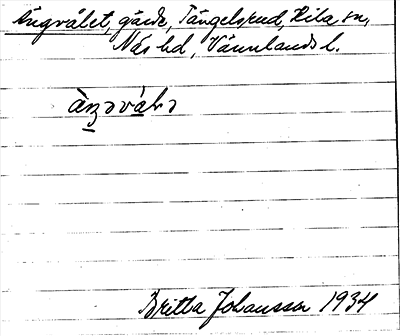 Ängvålet, gärde, Tängelsrud, Hila sn,
Näs hd, Värmlands l.
Britta Johansson 1934